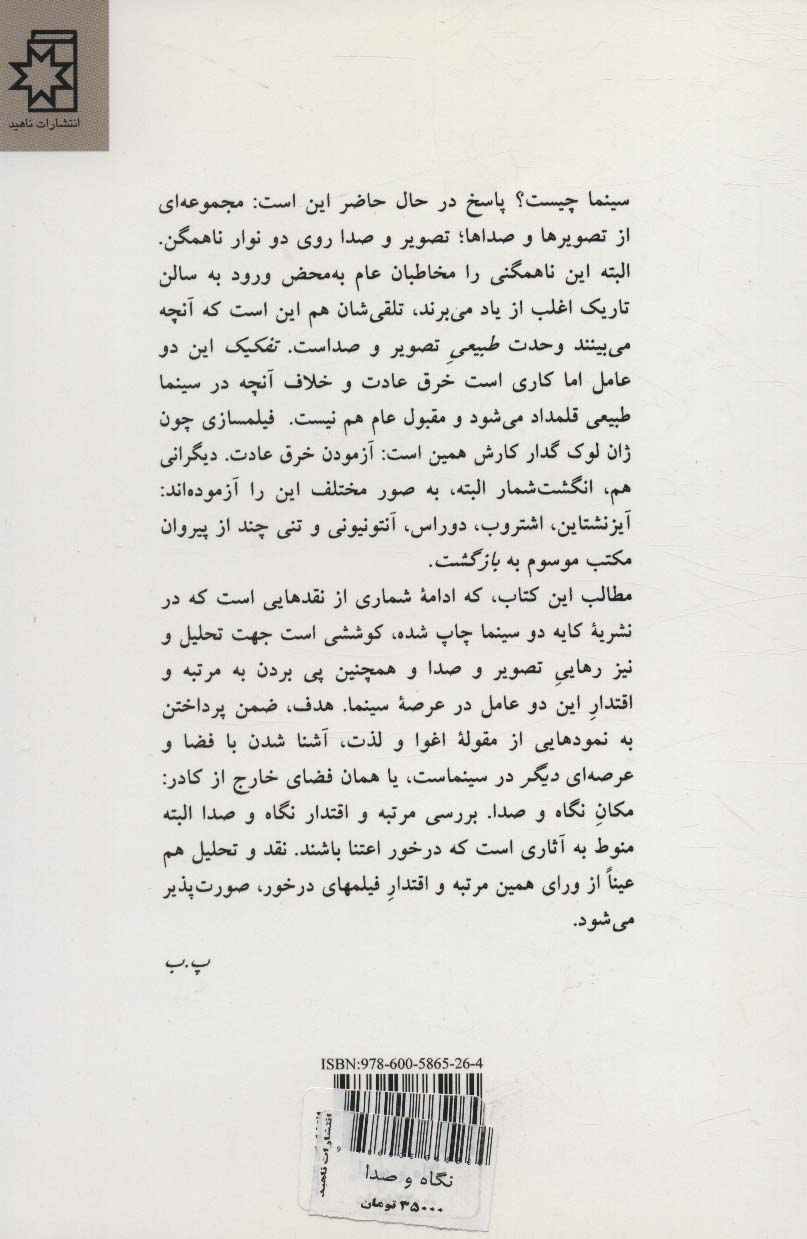 انتشارات ناهید
سینما چیست؟ پاسخ در حال حاضر این است: مجموعه‌ای
از تصویرها و صداها؛ تصویر و صدا روی دو نوار ناهمگن.
البته این ناهمگنی را مخاطبان عام به‌محض ورود به سالن
تاریک اغلب از یاد می‌برند، تلقی‌شان هم این است که آنچه
می‌بینند وحدت طبیعیِ تصویر و صداست. تفکیک این دو
عامل اما کاری است خرق عادت و خلاف آنچه در سینما
طبیعی قلمداد می‌شود و مقبول عام هم نیست. فیلمسازی چون
ژان لوک گدار کارش همین است: آزمودن خرق عادت. دیگرانی
هم، انگشت‌شمار البته، به صور مختلف این را آزموده‌اند:
آیزنشتاین، اشتروب، دوراس، آنتونیونی و تنی چند از پیروان
مکتب موسوم به بازگشت.
مطالب این کتاب، که ادامهٔ شماری از نقدهایی است که در
نشریهٔ کایه دو سینما چاپ شده، کوششی است جهت تحلیل و
نیز رهاییِ تصویر و صدا و همچنین پی بردن به مرتبه و
اقتدارِ این دو عامل در عرصهٔ سینما. هدف، ضمن پرداختن
به نمودهایی از مقولهٔ اغوا و لذت، آشنا شدن با فضا و
عرصه‌ای دیگر در سینماست، یا همان فضای خارج از کادر:
مکانِ نگاه و صدا. بررسی مرتبه و اقتدار نگاه و صدا البته
منوط به آثاری است که درخور اعتنا باشند. نقد و تحلیل هم
عیناً از ورای همین مرتبه و اقتدارِ فیلمهای درخور، صورت‌پذیر
می‌شود.
پ.ب
ISBN:978-600-5865-26-4
انتشارات ناهید
نگاه و صدا
۳۵۰۰۰ تومان